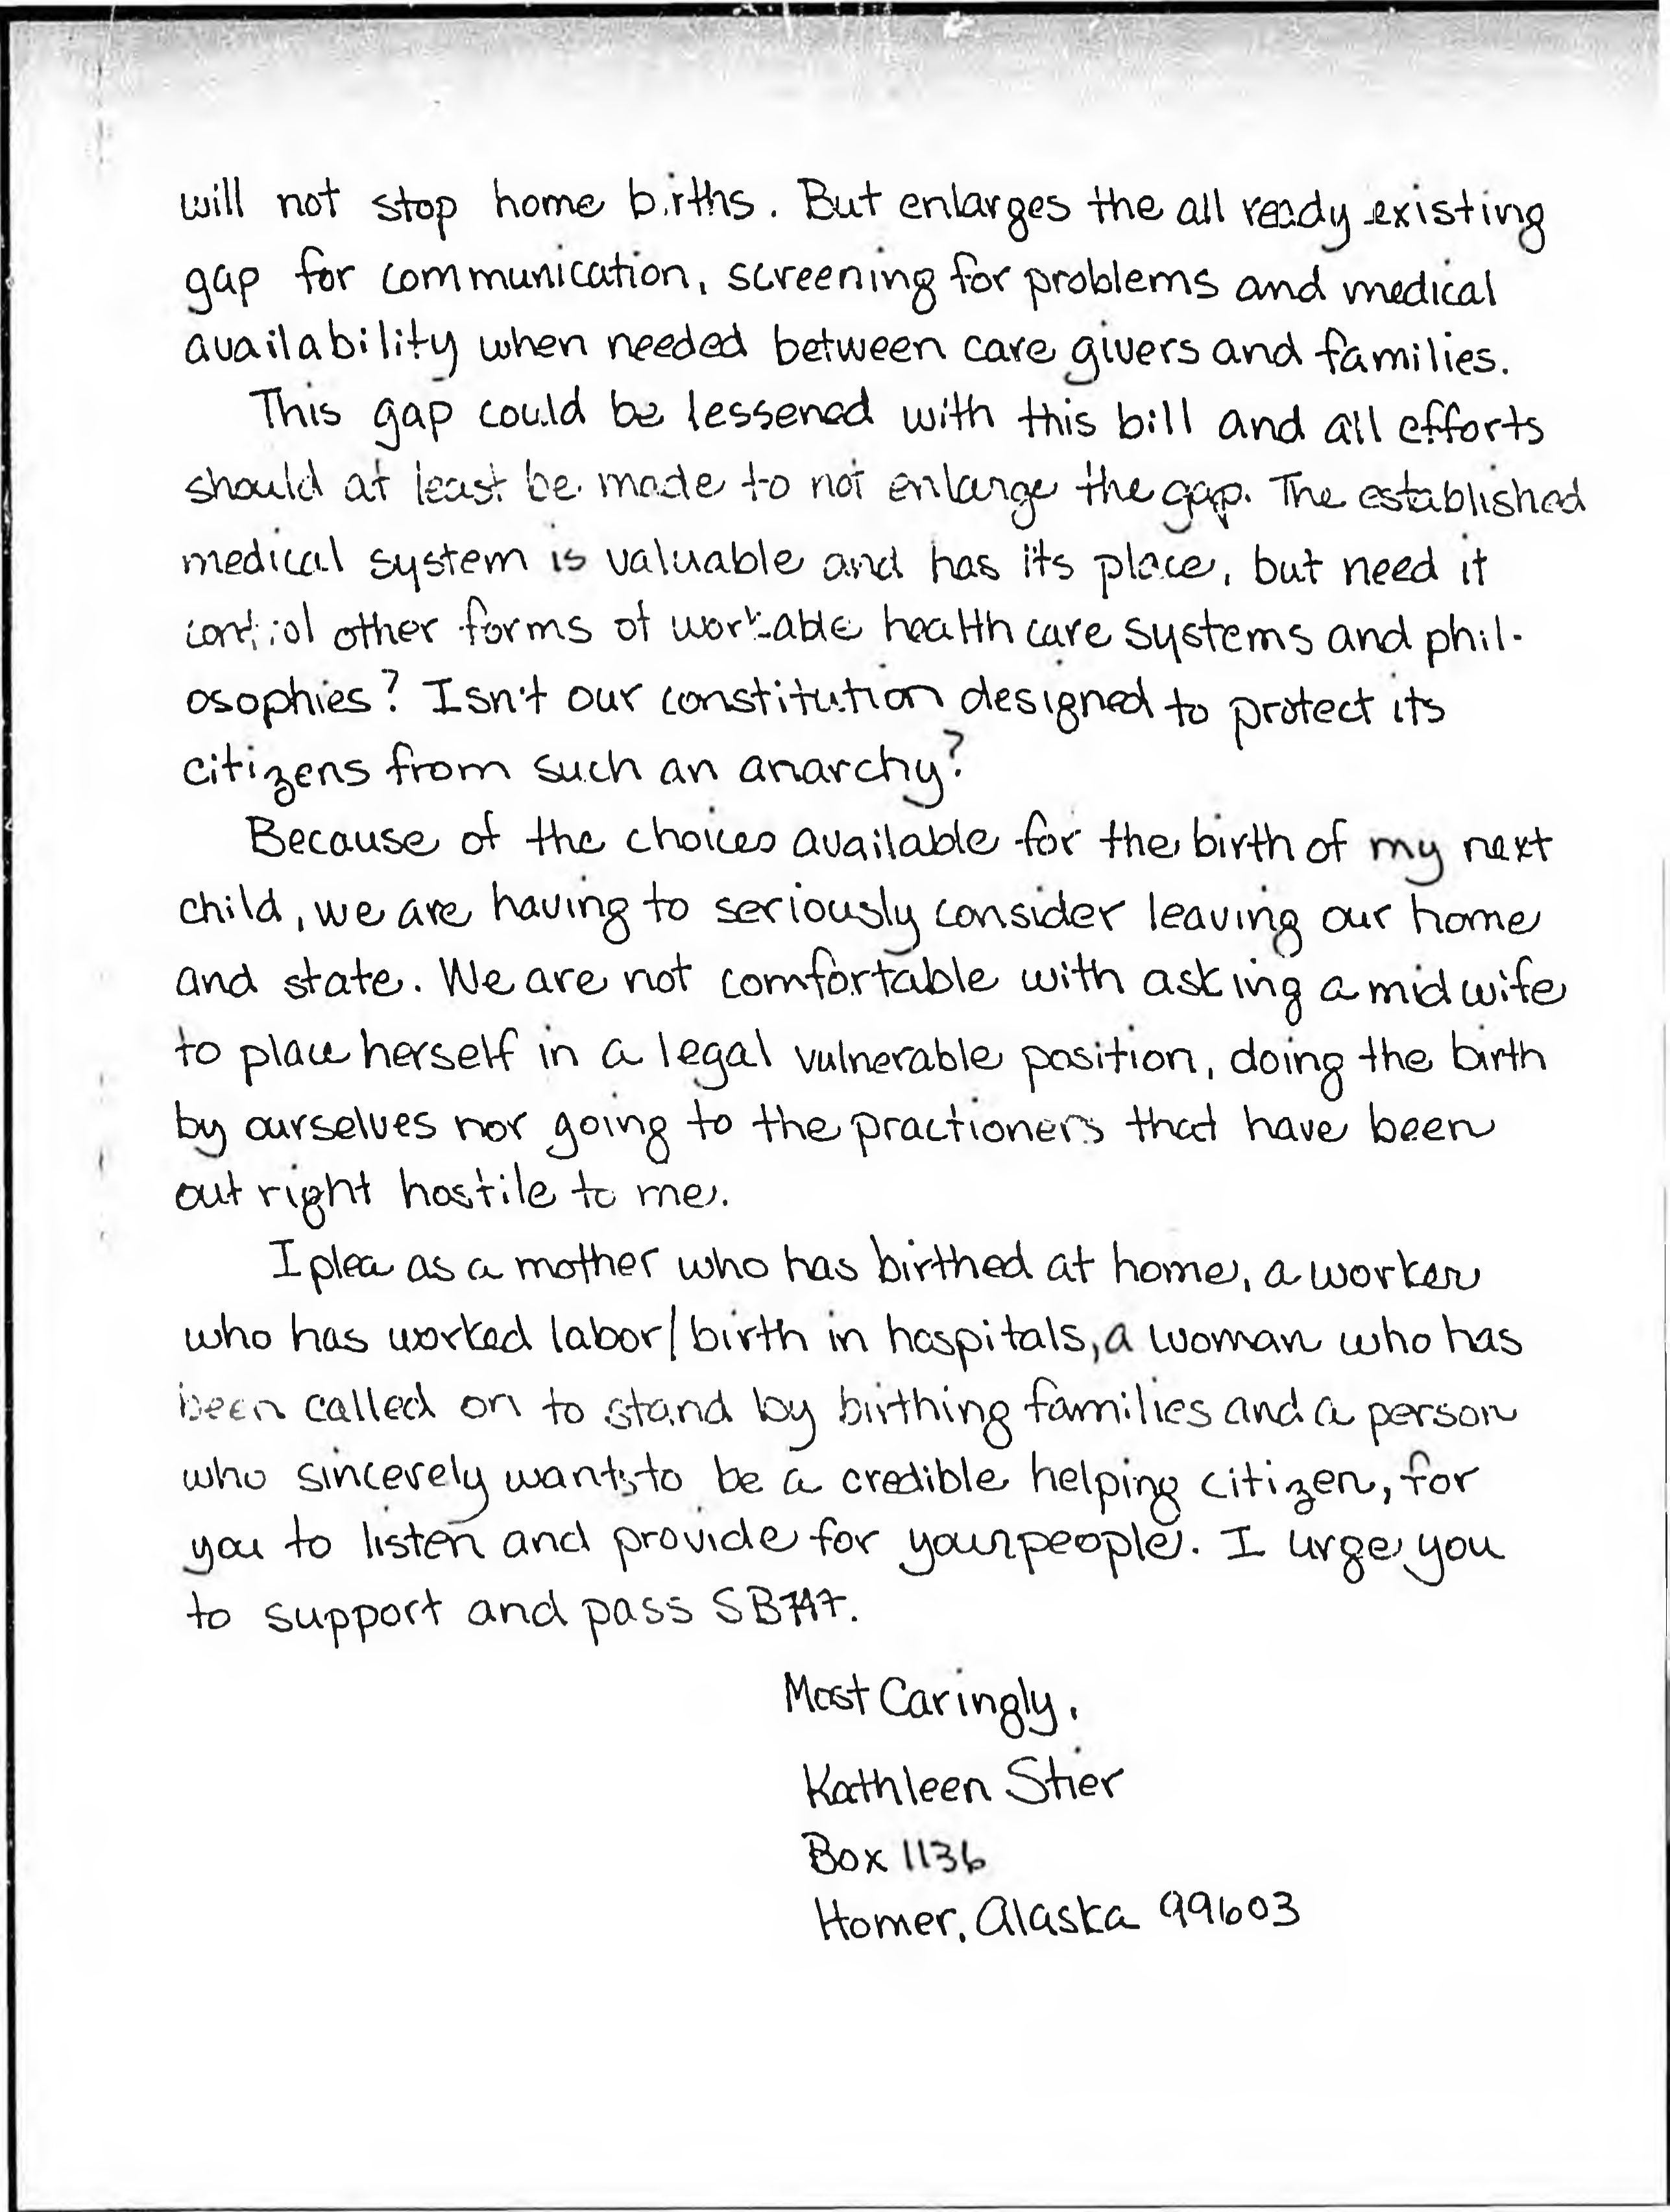 will not stop home births. But enlarges the all ready existing
gap for communication, screening for problems and medical
availability when needed between care givers and families.
This gap could be lessened with this bill and all efforts
should at least be made to not enlarge the gap. The established
medical system is valuable and has its place, but need it
control other forms of workable health care systems and phil-
osophies? Isn't our constitution designed to protect its
citizens from such an anarchy?
Because of the choices available for the birth of my next
child, we are having to seriously consider leaving our home
and state. We are not comfortable with asking a midwife
to place herself in a legal vulnerable position, doing the birth
by ourselves nor going to the practioners that have been
out right hostile to me.
I plea as a mother who has birthed at home, a worker
who has worked labor/birth in hospitals, a woman who has
been called on to stand by birthing families and a person
who sincerely wants to be a credible helping citizen, for
you to listen and provide for your people. I urge you
to support and pass
Most Caringly,
Kathleen Stier
Box 1136
Homer, Alaska 99603